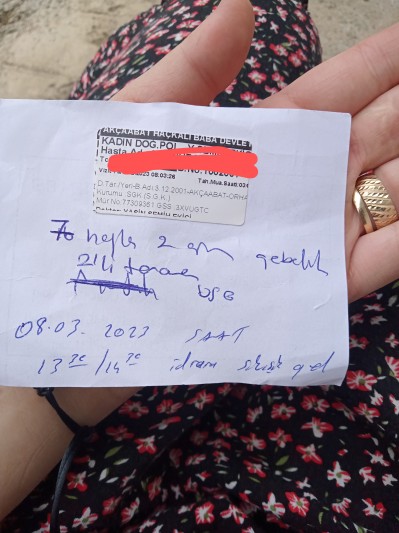 AKÇAABAT HAÇKALI BABA DEVLE
KADIN DOĞ.POL
Hasta Ad
2023 08:03:26 Tah.Mua.Saati:
D.Tar./Yan-B.Adı:3.12.2001-AKÇAABAT-ORHA
Kurumu :SGK (S.G.K.)
Mür No:77309351 GSS :3XVUGTC
hafta 2 gün gebelik
2'li tarama
USG
08.03.2023 SAAT
13 30 / 14 30 idrara sıkışık gel